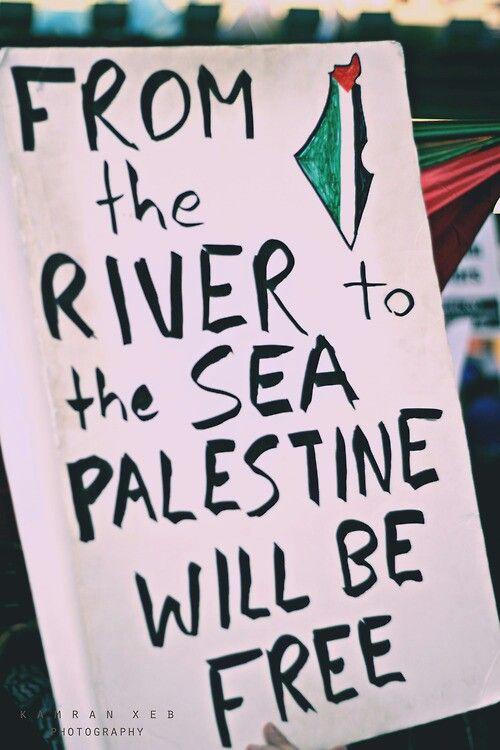 FROM
the
RIVER to
the SEA
PALESTINE
WILL BE
FREE
KAMRAN XEB
PHOTOGRAPHY